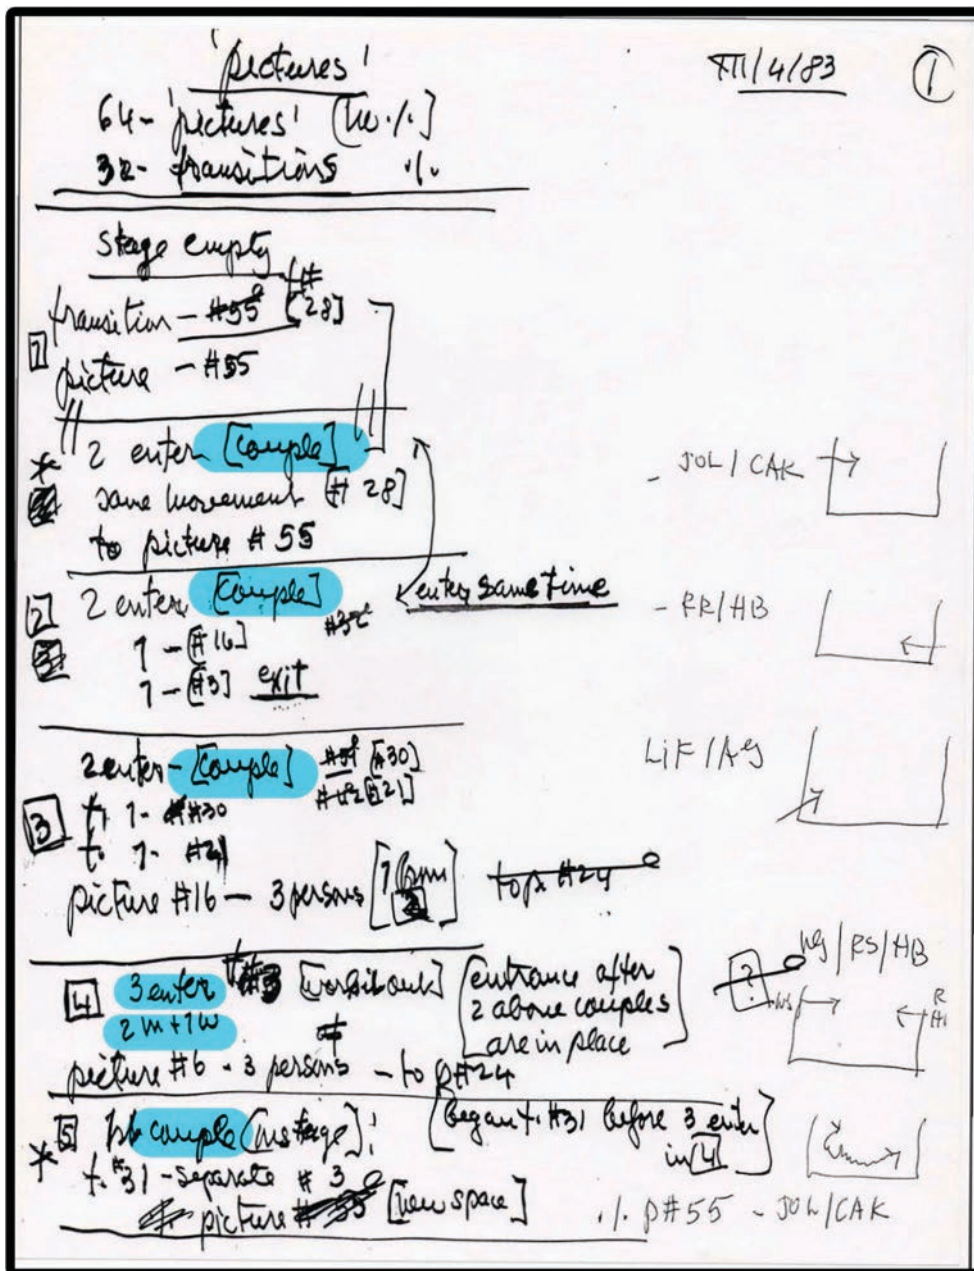 'pictures'
XII/4/83
1
64 - 'pictures' [no ·/.]
32 - transitions ·/.
stage empty
transition - #55 t# [28]
1
picture - #55
* 2 enter [couple]
same movement [# 28]
to picture # 55
- JOL / CAK
2 2 enter [couple] enter same time
1 - [#16]
1 - [#3] exit
- RR/HB
2 enter - [couple] [#30]
[#21]
3 t. 1 - #30
t. 1 - #21
picture #16 - 3 persons to p. #24
4 3 enter
2 m + 1 w
[entrance after
2 above couples
are in place]
/ RS / HB
?
picture #6 - 3 persons - to p#24
* 5 couple (onstage)
[began t. #31 before 3 enter
in 4]
t. #31 - separate # 3
picture #55 [new space]
·/. p#55 - JOL/CAK